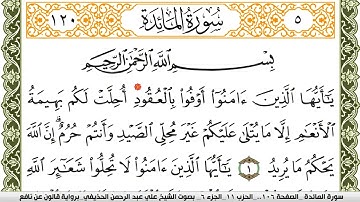 ٥ سُورَةُ المَائِدَةِ ١٢٠
بِسْمِ اللَّهِ الرَّحْمَٰنِ الرَّحِيمِ
يَٰٓأَيُّهَا اَلذِينَ ءَامَنُوٓاْ أَوْفُواْ بِالْعُقُودِ أُحِلَّتْ لَكُم بَهِيمَةُ
اُلْأَنْعَٰمِ إِلَّا مَا يُتْلَىٰ عَلَيْكُمْ غَيْرَ مُحِلِّے اِلصَّيْدِ وَأَنتُمْ حُرُمٌ إِنَّ اَللَّهَ
يَحْكُمُ مَا يُرِيدُ ١ يَٰٓأَيُّهَا اَلذِينَ ءَامَنُواْ لَا تُحِلُّواْ شَعَٰٓئِرَ اَللَّهِ
سورة المائدة _ الصفحة ١٠٦ _ الحزب ١١ _ الجزء ٦ _ بصوت الشيخ علي عبد الرحمن الحذيفي _ برواية قالون عن نافع